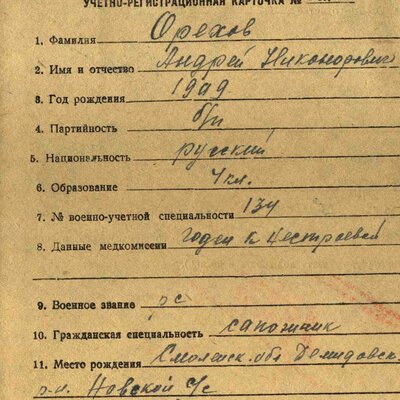 УЧЕТНО-РЕГИСТРАЦИОННАЯ КАРТОЧКА №
1. Фамилия Орехов
2. Имя и отчество Андрей Никонорович
3. Год рождения 1909
4. Партийность б/п
5. Национальность русский
6. Образование 4 кл.
7. № военно-учетной специальности 134
8. Данные медкомиссии годен к нестроевой
9. Военное звание рс
10. Гражданская специальность сапожник
11. Место рождения Смоленск. обл Демидовск.
р-н. Новской с/с